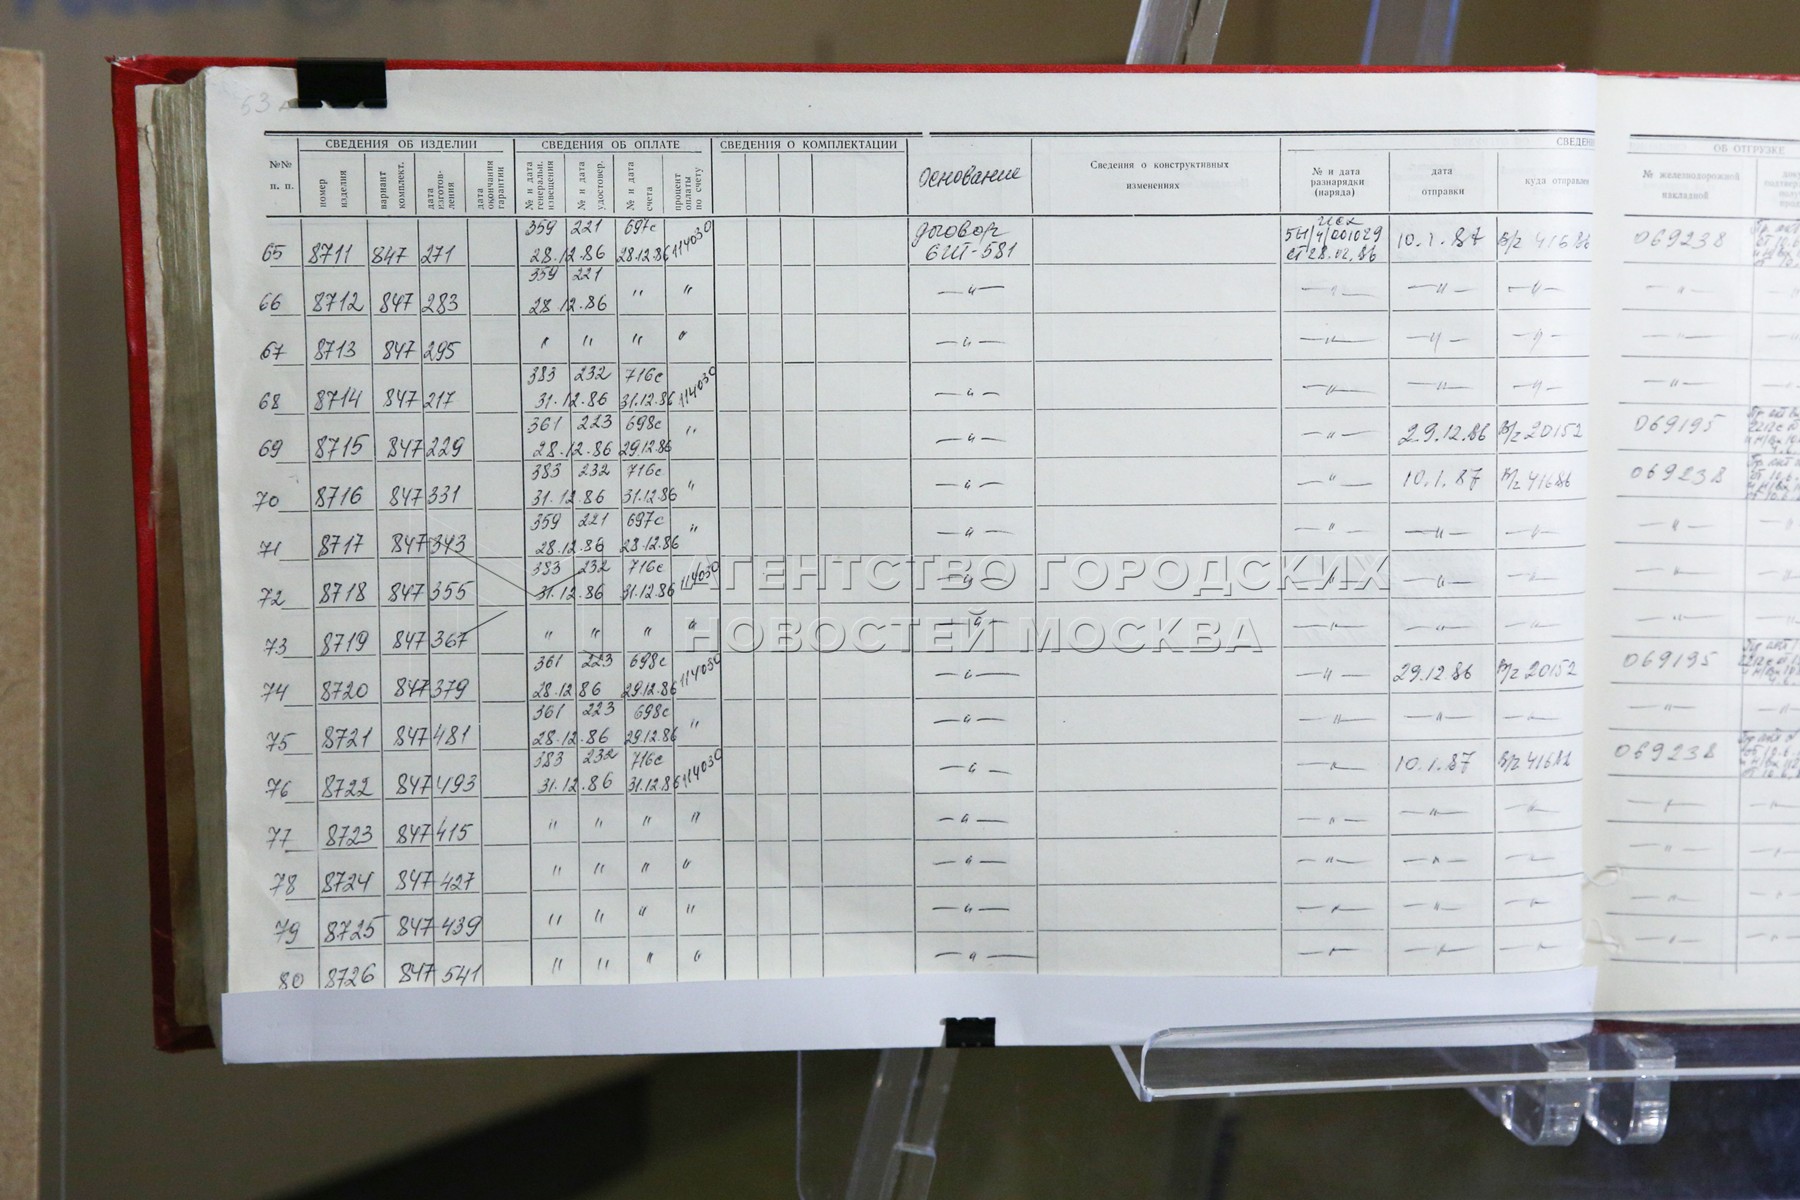 СВЕДЕНИЯ ОБ ИЗДЕЛИИ СВЕДЕНИЯ ОБ ОПЛАТЕ СВЕДЕНИЯ О КОМПЛЕКТАЦИИ Основание Сведения о конструктивных изменениях СВЕДЕНИ ОБ ОТГРУЗКЕ
№№ п. п. номер изделия вариант комплект. дата изготов- ления дата окончания гарантии № и дата генеральн. извещения № и дата удостовер. № и дата счета процент оплаты по счету № и дата разнарядки (наряда) дата отправки куда отправле № железнодорожной накладной
359 221 697с договор исх
65 8711 847 271 28.12.86 28.12.86 114030 6ШТ-581 561/4/001029 от 28.02.86 10.1.87 В/г 41686 069238
359 221
66 8712 847 283 28.12.86 " " —"— —"— —"— —"— —"—
67 8713 847 295 " " " " —"— —"— —"— —"— —"—
383 232 716с
68 8714 847 217 31.12.86 31.12.86 114030 —"— —"— —"— —"— —"—
361 223 698с
69 8715 847 229 28.12.86 29.12.86 " —"— —"— 29.12.86 В/г 20152 069195
383 232 716с
70 8716 847 331 31.12.86 31.12.86 " —"— —"— 10.1.87 В/г 41686 069238
359 221 697с
71 8717 847 343 28.12.86 28.12.86 " —"— —"— —"— —"— —"—
383 232 716с
72 8718 847 355 31.12.86 31.12.86 114030 —"— —"— —"— —"— —"—
73 8719 847 367 " " " " —"— —"— —"— —"— —"—
361 223 698с
74 8720 847 379 28.12.86 29.12.86 114030 —"— —"— 29.12.86 В/г 20152 069195
361 223 698с
75 8721 847 481 28.12.86 29.12.86 " —"— —"— —"— —"— —"—
383 232 716с
76 8722 847 493 31.12.86 31.12.86 114030 —"— —"— 10.1.87 В/г 41682 069238
77 8723 847 415 " " " " —"— —"— —"— —"— —"—
78 8724 847 427 " " " " —"— —"— —"— —"— —"—
79 8725 847 439 " " " " —"— —"— —"— —"— —"—
80 8726 847 541 " " " " —"— —"— —"— —"— —"—
АГЕНТСТВО ГОРОДСКИХ
НОВОСТЕЙ МОСКВА